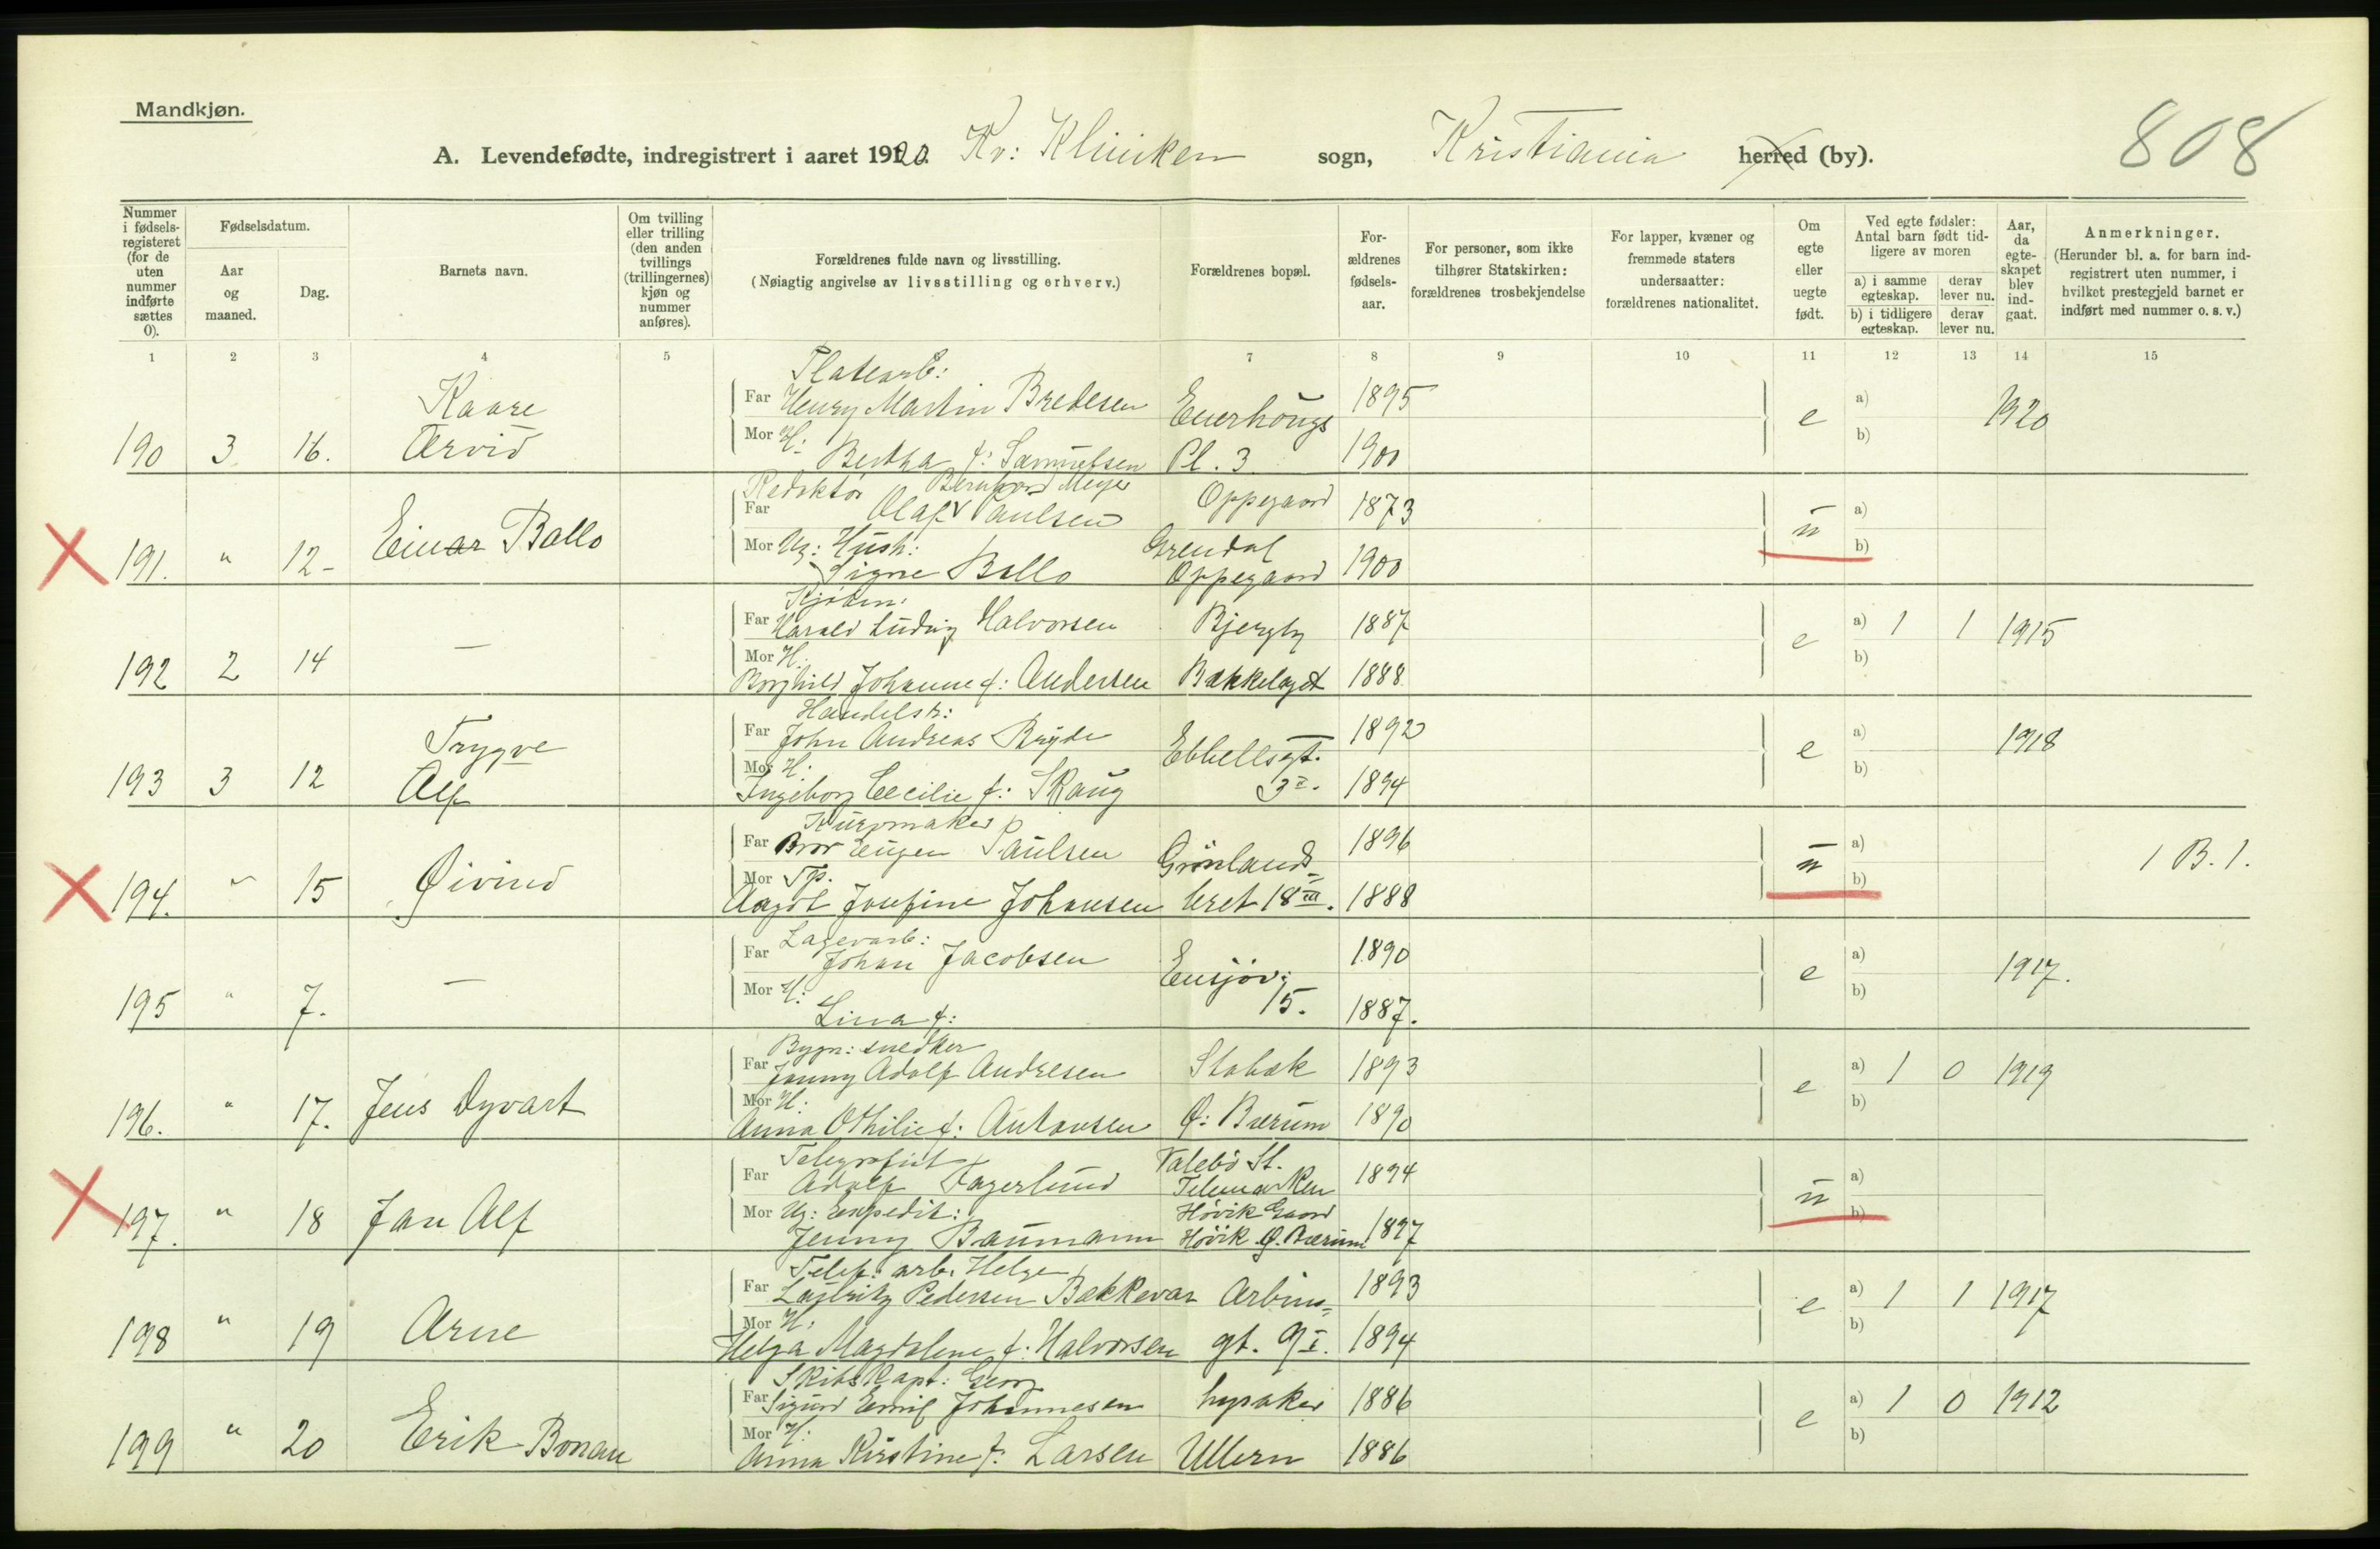 Mandkjøn.
808
A. Levendefødte, indregistrert i aaret 1920. Kv: Kliniken sogn, Kristiania herred (by).
Nummer i fødsels-registeret (for de uten nummer indførte sættes 0).
Fødselsdatum.
Aar og maaned.
Dag.
Barnets navn.
Om tvilling eller trilling (den anden tvillings (trillingernes) kjøn og nummer anføres).
Forældrenes fulde navn og livsstilling.
(Nøiagtig angivelse av livsstilling og erhverv.)
Forældrenes bopæl.
For-ældrenes fødsels-aar.
For personer, som ikke tilhører Statskirken: forældrenes trosbekjendelse
For lapper, kvæner og fremmede staters undersaatter: forældrenes nationalitet.
Om egte eller uegte født.
Ved egte fødsler: Antal barn født tid-ligere av moren
a) i samme egteskap. derav lever nu.
b) i tidligere egteskap. derav lever nu.
Aar, da egte-skapet blev ind-gaat.
Anmerkninger.
(Herunder bl. a. for barn ind-registrert uten nummer, i hvilket prestegjeld barnet er indført med nummer o. s. v.)
1 2 3 4 5 7 8 9 10 11 12 13 14 15
Platearb:
Kaare Far Henry Martin Bredesen Enerhougs 1895 e a) 1920
190 3 16. Arvid Mor H: Bertha f: Samuelsen Pl. 3 1900 b)
Redaktør Bernhard Meyer
Far Olaf Paulsen Oppegaard 1873 u a)
191. " 12- Einar Ballo Mor Ug: Hush: Grendal b)
Signe Ballo Oppegaard 1900
Far Harald Ludvig Halvorsen Bjergly 1887 e a) 1 1 1915
192 2 14 — Mor H. b)
Borghild Johanne f: Andersen Bækkelaget 1888
Handelsb:
Trygve Far John Andreas Bryde Ebbellsgt. 1892 e a) 1918
193 3 12 Alf Mor H: b)
Ingeborg Cecilie f: Skaug 3 II. 1894
Kurvmaker
Far Bror Eugen Paulsen Grønlands- 1896 u a) 1 B. 1.
194. " 15 Øivind Mor Tp. b)
Aagot Josefine Johansen leret 18 III. 1888
Lagerarb:
Far Johan Jacobsen Ensjøv: 1890 e a) 1917.
195 " 7. — Mor H: 15. b)
Lina f: 1887.
Bygn: snedker
Far Jonny Adolf Andresen Stabæk 1893 e a) 1 0 1919
196. " 17. Jens Dyvart Mor H: b)
Anna Othilie f: Antonsen Ø: Bærum 1890
Telegrafist Valebø St.
Far Adolf Fagerlund Telemarken 1894 u a)
197. " 18 Jan Alf Mor Ug: Expedit: Høvik Gaard b)
Jenny Baumann Høvik Ø. Bærum 1897
Telef: arb. Helge
Far Lauritz Pedersen Bakkevar Arbins- 1893 e a) 1 1 1917
198 " 19 Arne Mor H: b)
Helga Magdalene f: Halvorsen gt. 9 I. 1894
Skibskapt: Georg
Far Sigurd Emil Johannesen Lysaker 1886 e a) 1 0 1912
199 " 20 Erik Bonan Mor H: b)
Anna Kirstine f: Larsen Ullern 1886